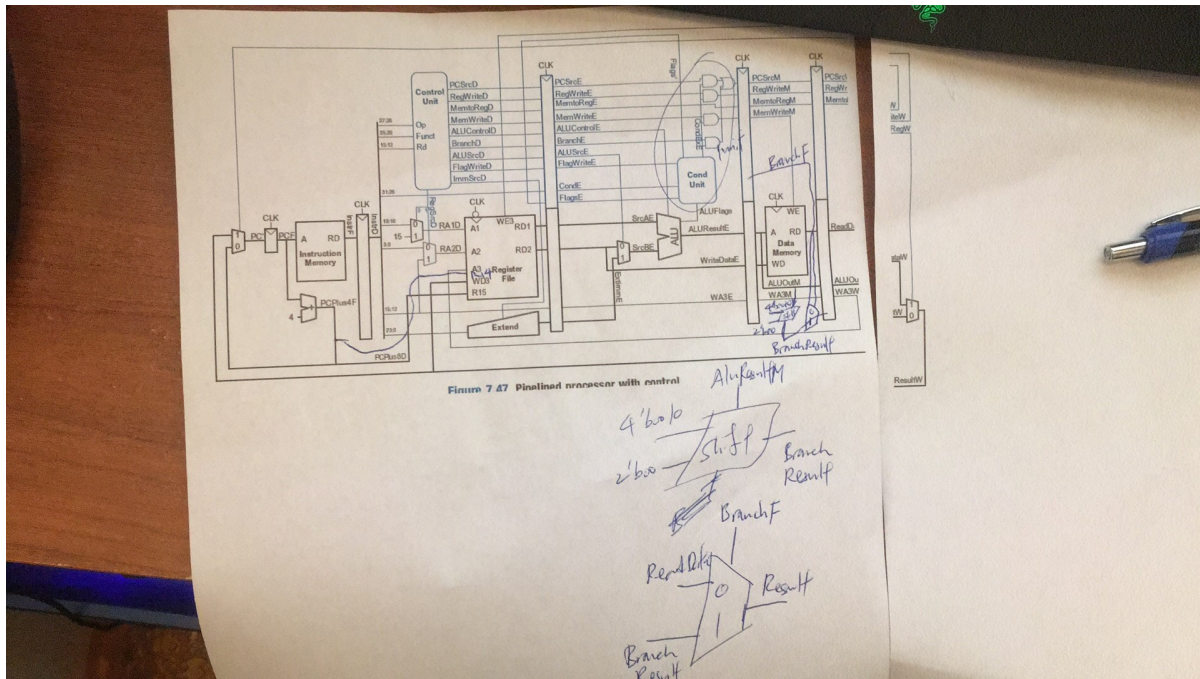 CLK
CLK
CLK
Control
Unit
Op
Funct
Rd
PCSrcD
RegWriteD
MemtoRegD
MemWriteD
ALUControlD
BranchD
ALUSrcD
FlagWriteD
ImmSrcD
PCSrcE
RegWriteE
MemtoRegE
MemWriteE
ALUControlE
BranchE
ALUSrcE
FlagWriteE
CondE
FlagsE
Flags'
CondExE
Cond
Unit
PCSrcM
RegWriteM
MemtoRegM
MemWriteM
BranchF
CLK
CLK
CLK
CLK
PCF
A RD
Instruction
Memory
InstrF
InstrD
19:16
15
3:0
RA1D
RA2D
A1
A2
A3
WD3
R15
WE3
RD1
RD2
Register
File
SrcAE
SrcBE
ALU
ALUFlags
ALUResultE
WriteDataE
ExtImmE
WE
A RD
Data
Memory
WD
ALUOutM
WA3E
WA3M
WA3W
4
PCPlus4F
PCPlus8D
15:12
23:0
Extend
BranchResult
ResultW
Figure 7.47 Pipelined processor with control
AluResultM
4'b0010
2'b00
Shift
Branch
Result
BranchF
0
1
Result
Branch
Result